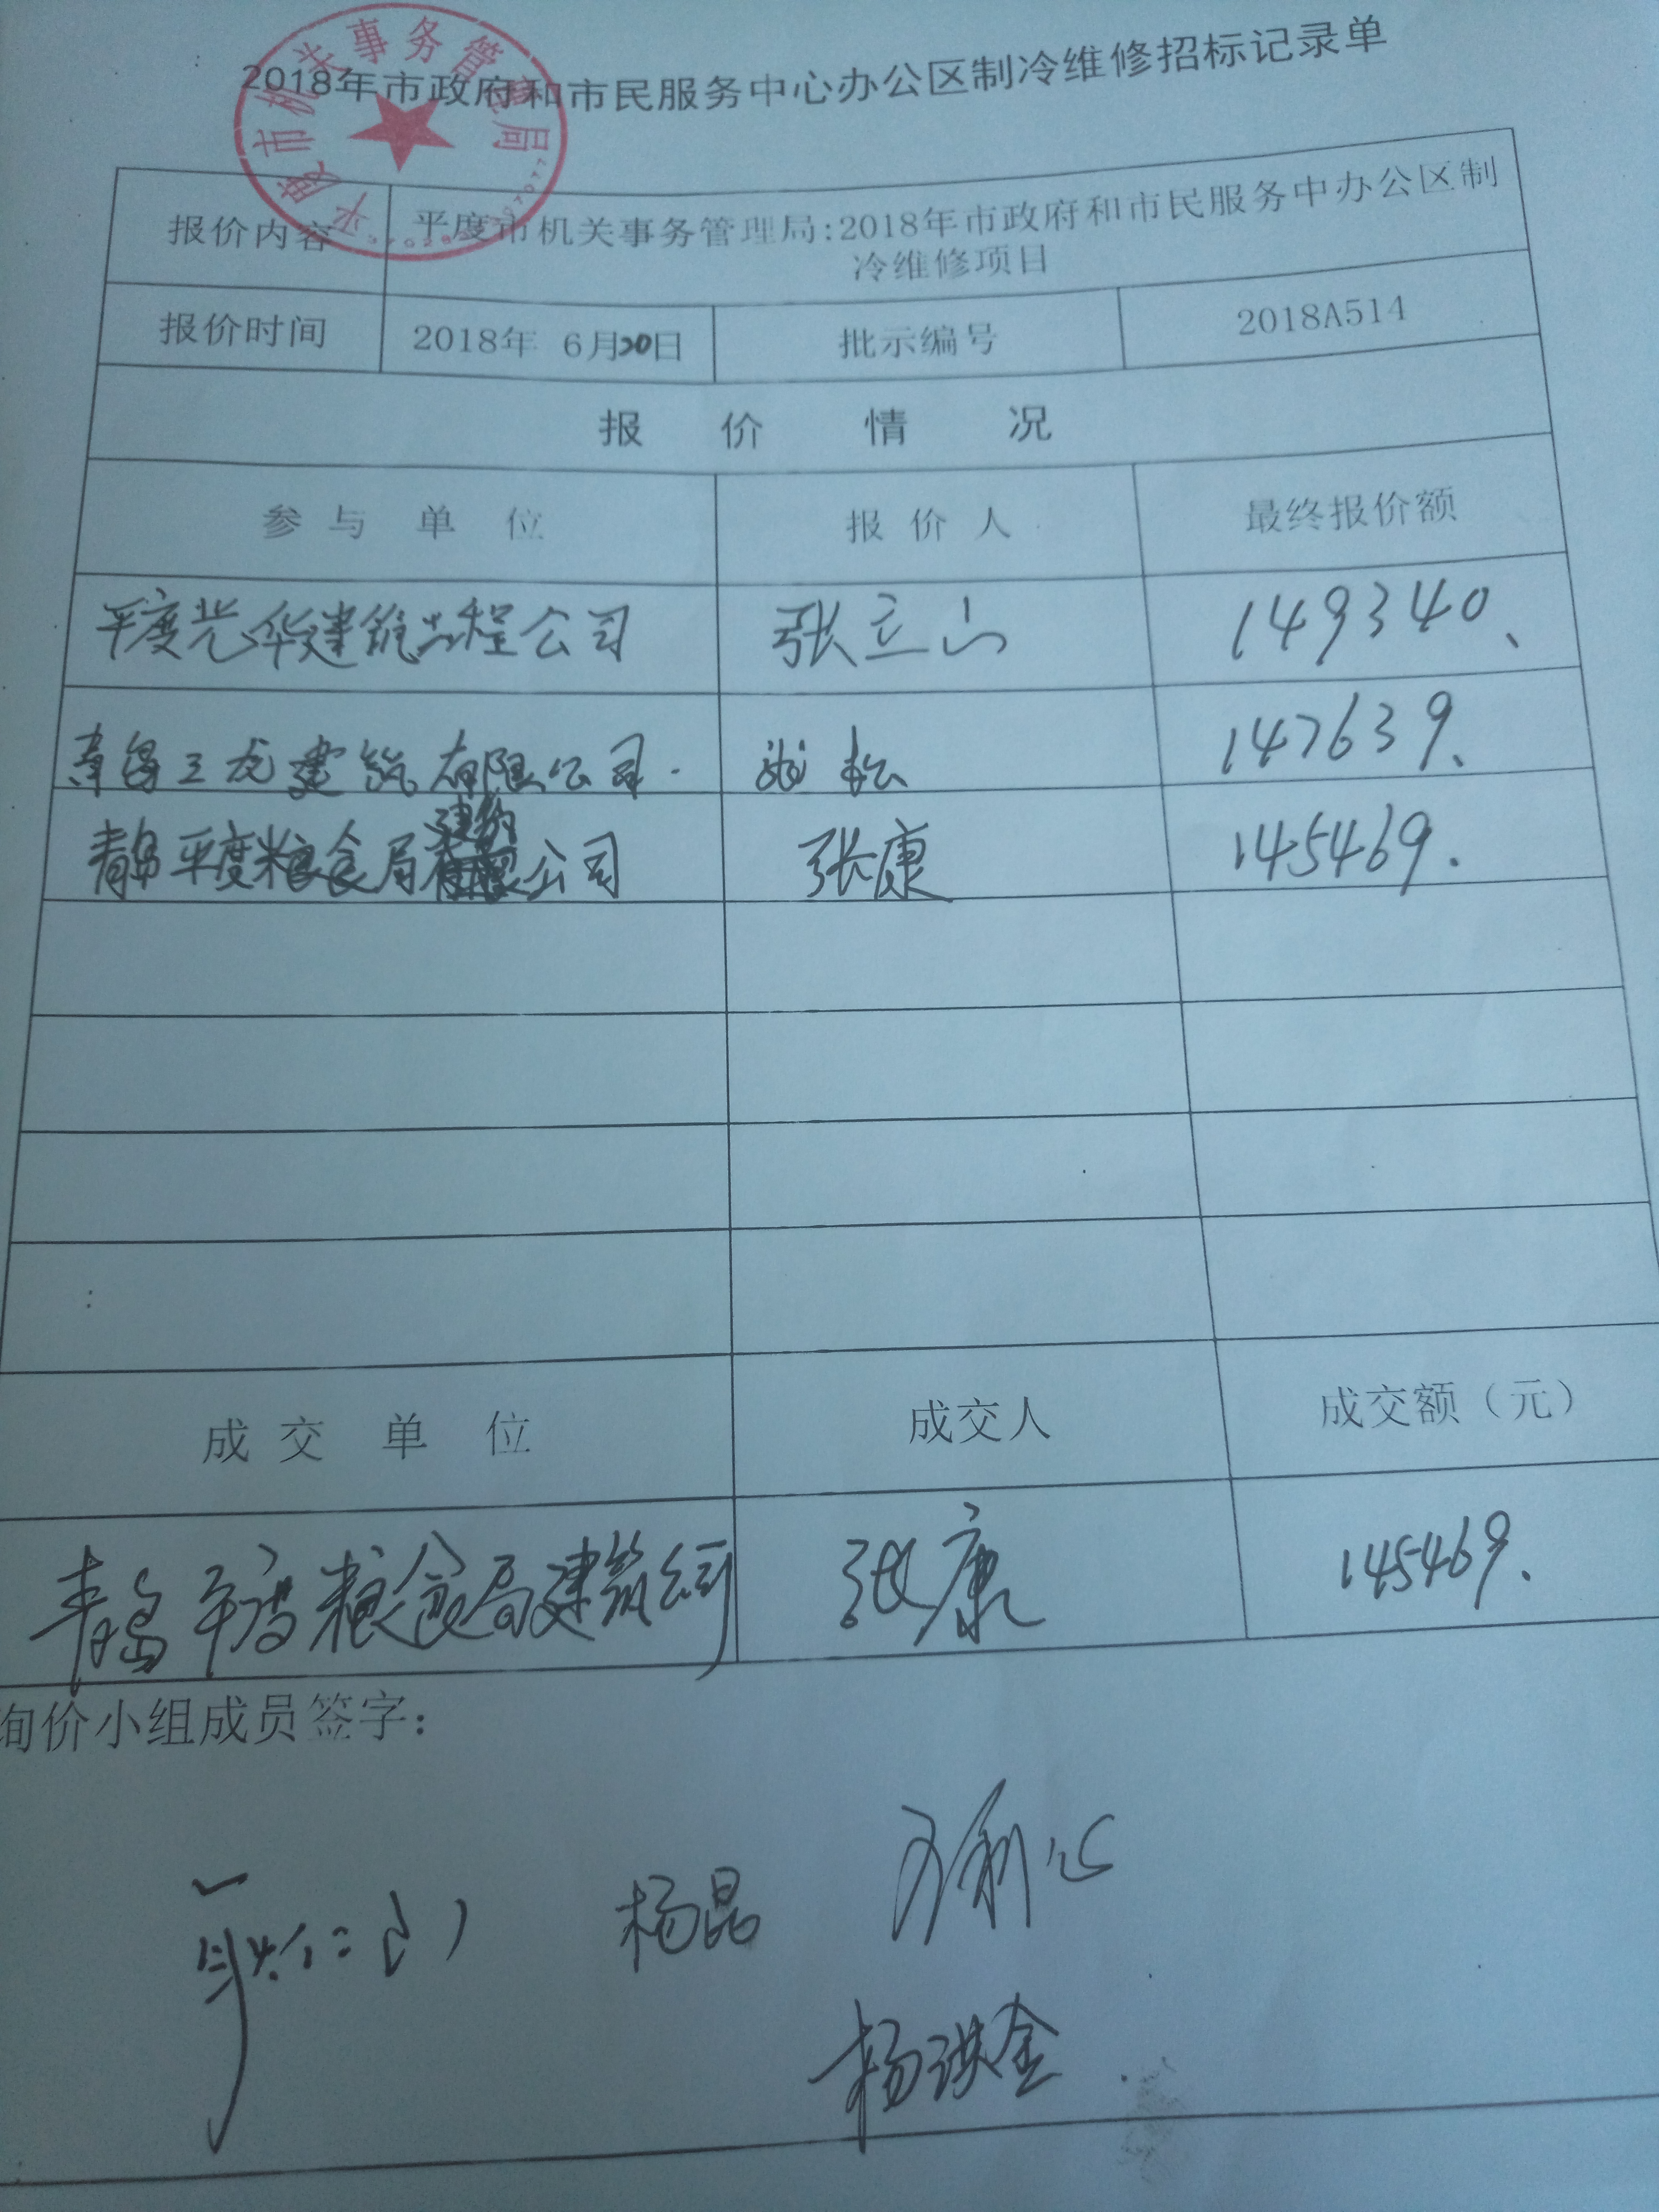 2018年市政府和市民服务中心办公区制冷维修招标记录单
平度市机关事务管理局
报价内容
平度市机关事务管理局:2018年市政府和市民服务中办公区制
冷维修项目
报价时间
2018年 6月20日
批示编号
2018A514
报 价 情 况
参 与 单 位
报 价 人
最终报价额
平度光华建筑工程公司
张立山
149340、
青岛三龙建筑有限公司.
松
147639、
青岛平度粮食局建筑公司
张康
145469.
成 交 单 位
成交人
成交额（元）
青岛平度粮食局建筑公司
张康
145469.
询价小组成员签字：
杨晶
杨洪金